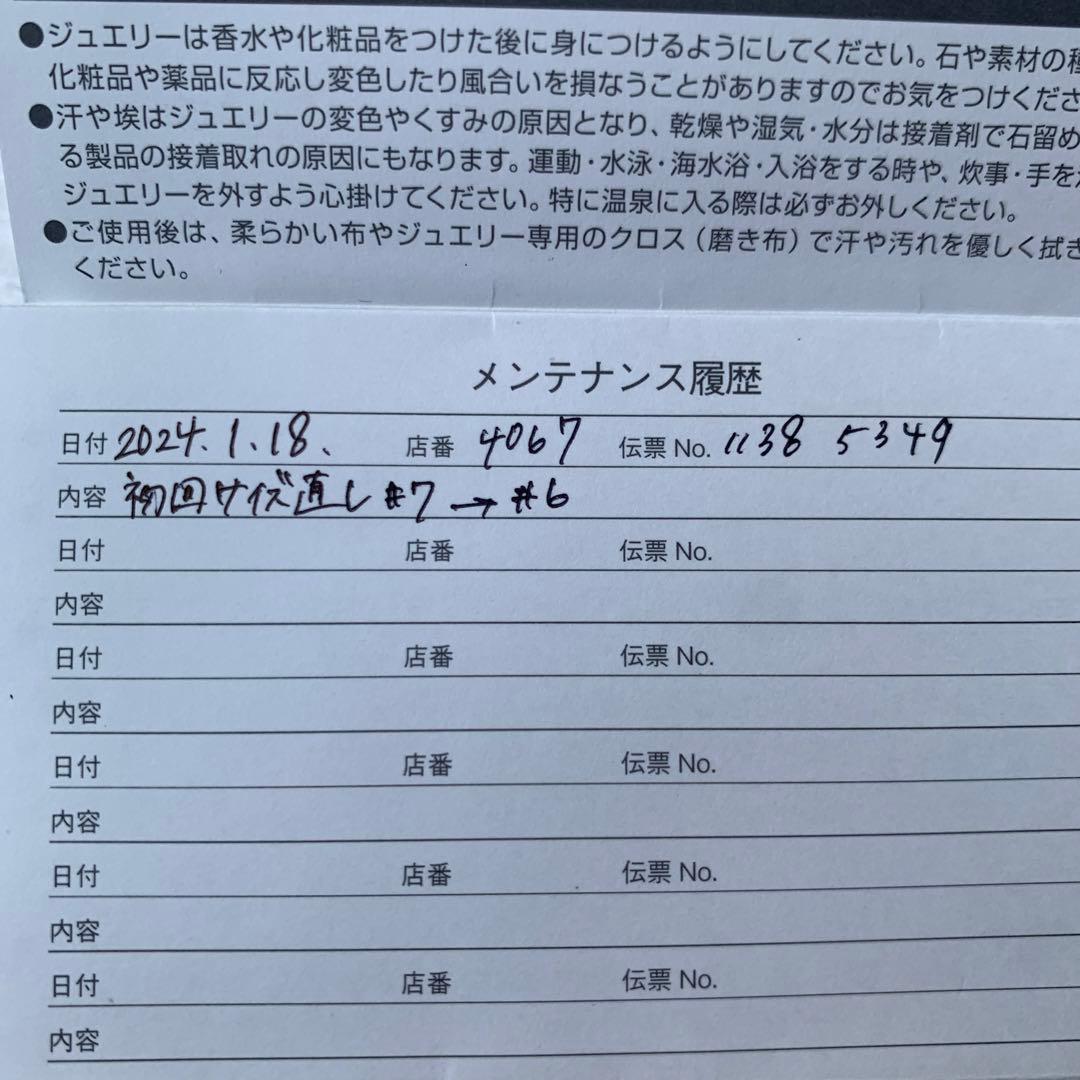 ●ジュエリーは香水や化粧品をつけた後に身につけるようにしてください。石や素材の種
化粧品や薬品に反応し変色したり風合いを損なうことがありますのでお気をつけくださ
●汗や埃はジュエリーの変色やくすみの原因となり、乾燥や湿気・水分は接着剤で石留め
る製品の接着取れの原因にもなります。運動・水泳・海水浴・入浴をする時や、炊事・手を
ジュエリーを外すよう心掛けてください。特に温泉に入る際は必ずお外しください。
●ご使用後は、柔らかい布やジュエリー専用のクロス(磨き布)で汗や汚れを優しく拭き
ください。
メンテナンス履歴
日付 2024.1.18. 店番 4067 伝票 No. 1138 5349
内容 初回サイズ直し #7 → #6
日付 店番 伝票 No.
内容
日付 店番 伝票 No.
内容
日付 店番 伝票 No.
内容
日付 店番 伝票 No.
内容
日付 店番 伝票 No.
内容